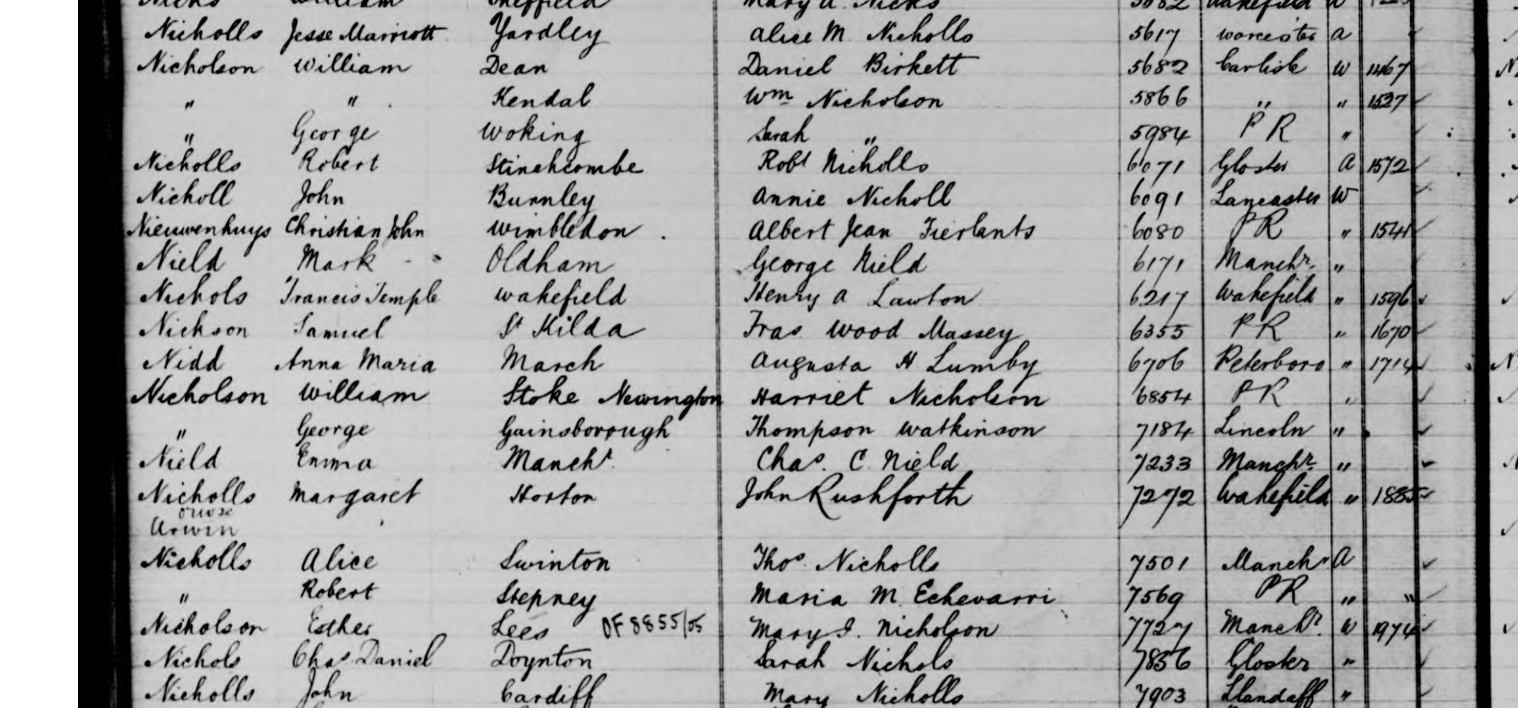 William Sheffield Mary A. Nicks 5682 Wakefield W
Nicholls Jesse Marriott Yardley Alice M Nicholls 5617 Worcester A
Nicholson William Dean Daniel Birkett 5682 Carlisle W 1467
" " Kendal Wm Nicholson 5866 " " 1527
" George Woking Sarah " 5984 P R "
Nicholls Robert Stinchcombe Robt Nicholls 6071 Gloster A 1572
Nicholl John Burnley Annie Nicholl 6091 Lancaster W
Nieuwenhuys Christian John Wimbledon Albert Jean Tierlants 6080 P R " 1541
Nield Mark Oldham George Nield 6171 Manchr. "
Nichols Francis Temple Wakefield Henry A Lawton 6217 Wakefield " 1596
Nickson Samuel St Kilda Fras Wood Massey 6355 P R " 1670
Nidd Anna Maria March Augusta H Lumby 6706 Peterboro " 1714
Nicholson William Stoke Newington Harriet Nicholson 6854 P R "
" George Gainsborough Thompson Watkinson 7184 Lincoln "
Nield Emma Manchr. Chas. C. Nield 7233 Manchr. "
Nicholls Margaret Horton John Rushforth 7272 Wakefield " 1885
orwse
Arwin
Nicholls Alice Swinton Thos. Nicholls 7501 Manchr A
" Robert Stepney Maria M. Echevarri 7569 P R " "
Nicholson Esther Lees OF 8855/05 Mary J. Nicholson 7727 Manchr. W 1974
Nichols Chas Daniel Doynton Sarah Nichols 7856 Gloster "
Nicholls John Cardiff Mary Nicholls 7903 Llandaff "